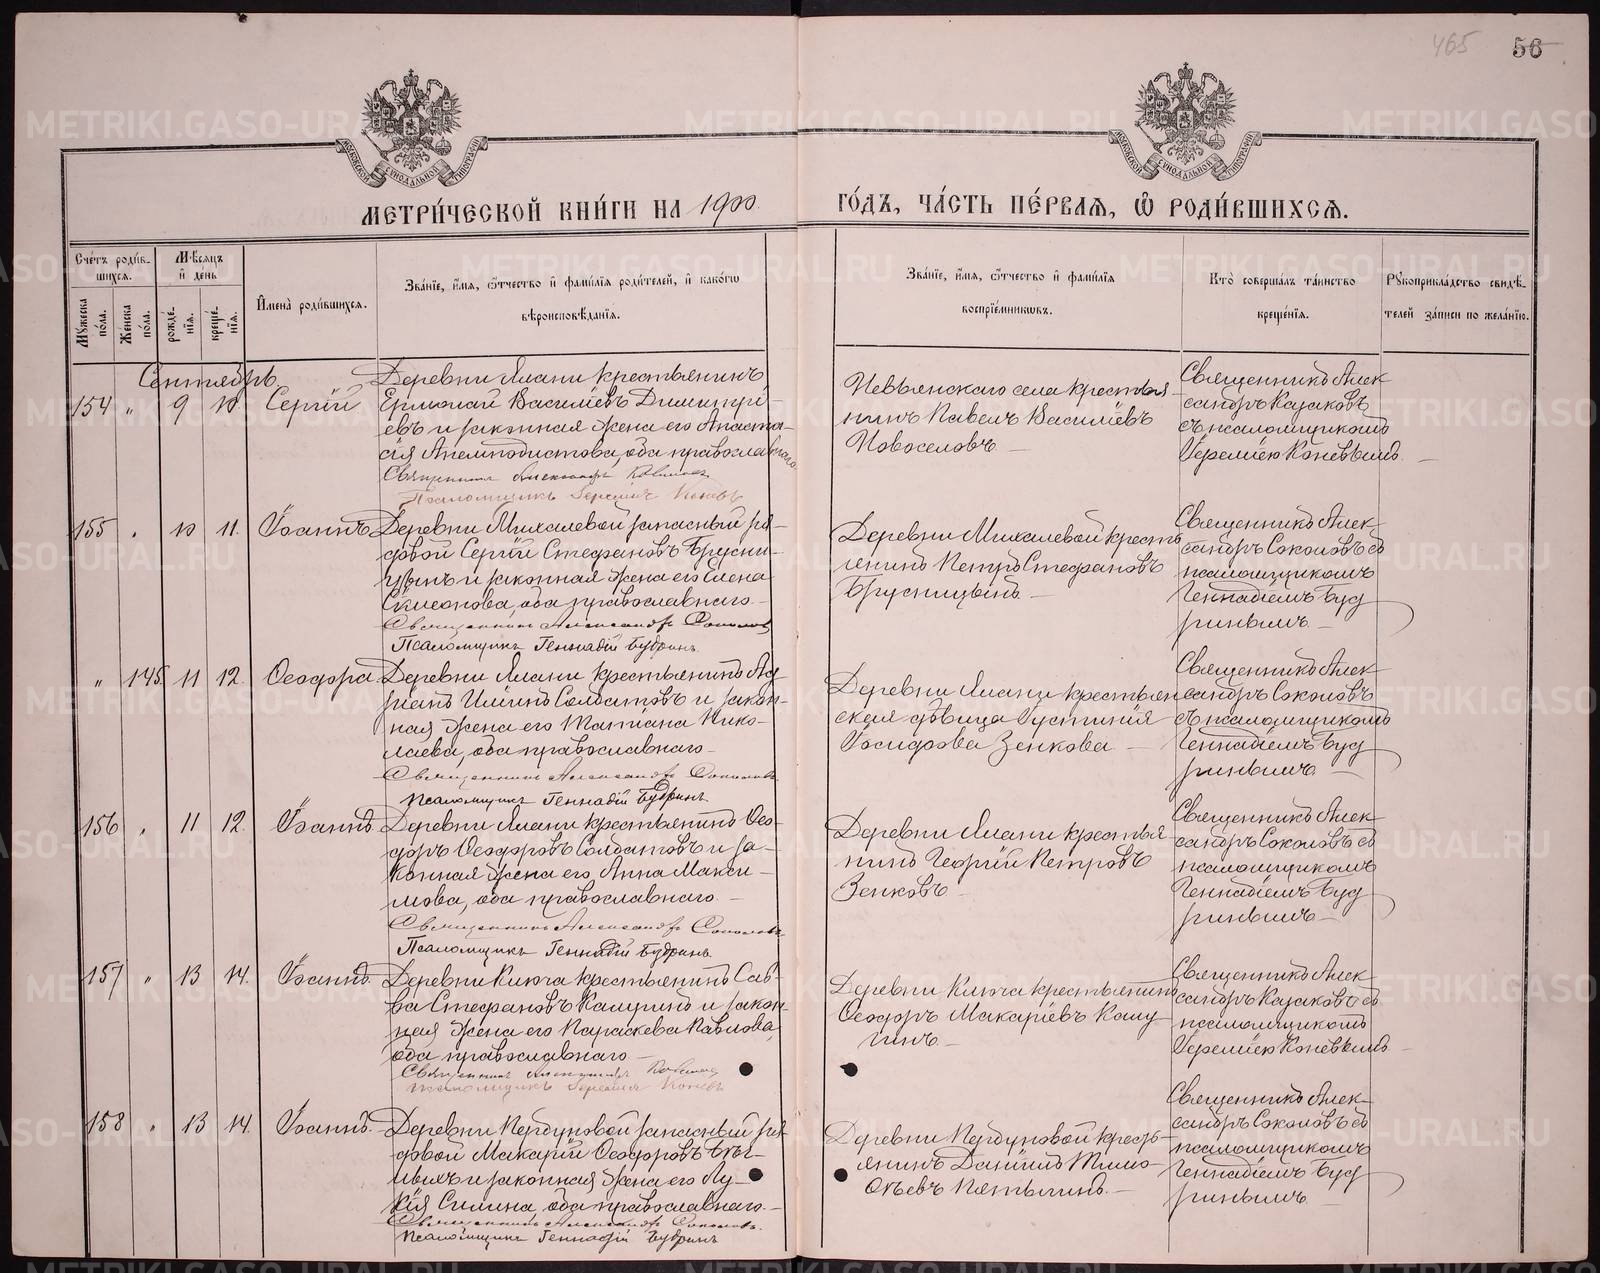 465
56
МОСКОВСКОЙ СѴНОДАЛЬНОЙ ТИПОГРАФІИ
МОСКОВСКОЙ СѴНОДАЛЬНОЙ ТИПОГРАФІИ
МЕТРИ́ЧЕСКОЙ КНИ́ГИ НА 1900
ГО́ДЪ, ЧА́СТЬ ПЕ́РВАѦ, Ѡ РОДИ́ВШИХСѦ.
Сче́тъ роди́в-
шихсѧ.
Мꙋ́жеска по́ла.
Же́нска по́ла.
Мѣ́сѧцъ
и҆ де́нь
рожде́-
нїѧ.
креще́-
нїѧ.
И҆мена̀ роди́вшихсѧ.
Зва́нїе, и҆́мѧ, ѻ҆́тчество и҆ фами́лїѧ роди́телей, и҆ како́гѡ
вѣроисповѣ́данїѧ.
Зва́нїе, и҆́мѧ, ѻ҆́тчество и҆ фами́лїѧ
воспрїе́мникѡвъ.
Кто̀ соверша́лъ та́инство
креще́нїѧ.
Рꙋкоприкла́дство свидѣ́-
телей за́писи по жела́нїю.
Сентябрь
154 " 9 10 Сергій
Деревни Ялани крестьянинъ
Ермолай Василіевъ Димитрі-
евъ и законная жена его Анаста-
сія Анемподистова, оба православнаго
Священникъ Александръ
Псаломщикъ Іеремія Коневъ
Невьянскаго села крестья
нинъ Павелъ Василіевъ
Новоселовъ
Священникъ Алек
сандръ Казаковъ
съ псаломщикомъ
Іереміею Коневымъ
155 " 10 11 Іоаннъ
Деревни Михалевой запасный ря-
довой Сергій Стефановъ Брусни-
цынъ и законная жена его Елена
Симеонова, оба православнаго
Священникъ Александръ Соколовъ
Псаломщикъ Геннадій Будринъ
Деревни Михалевой кресть
янинъ Петръ Стефановъ
Брусницынъ
Священникъ Алек
сандръ Соколовъ съ
псаломщикомъ
Геннадіемъ Буд
ринымъ
" 145 11 12 Ѳеодора
Деревни Ялани крестьянинъ Ад-
ріанъ Иліинъ Солдатовъ и закон-
ная жена его Татіана Нико-
лаева, оба православнаго
Священникъ Александръ Соколовъ
Псаломщикъ Геннадій Будринъ
Деревни Ялани крестьян
ская дѣвица Іустинія
Іосифова Зенкова
Священникъ Алек
сандръ Соколовъ
съ псаломщикомъ
Геннадіемъ Буд
ринымъ
156 " 11 12 Іоаннъ
Деревни Ялани крестьянинъ Ѳео-
доръ Ѳеодоровъ Солдатовъ и за-
конная жена его Анна Макси-
мова, оба православнаго
Священникъ Александръ Соколовъ
Псаломщикъ Геннадій Будринъ
Деревни Ялани крестья
нинъ Георгій Петровъ
Зенковъ
Священникъ Алек
сандръ Соколовъ съ
псаломщикомъ
Геннадіемъ Буд
ринымъ
157 " 13 14 Іоаннъ
Деревни Ключа крестьянинъ Сав-
ва Стефановъ Калугинъ и закон-
ная жена его Параскева Павлова,
оба православнаго
Священникъ Александръ
Псаломщикъ Іеремія Коневъ
Деревни Ключа крестьянинъ
Ѳеодоръ Макаріевъ Калу
гинъ
Священникъ Алек
сандръ Казаковъ съ
псаломщикомъ
Іереміею Коневымъ
158 " 13 14 Іоаннъ
Деревни Пердуновой запасный ря-
довой Макарій Ѳеодоровъ
и законная жена его Лу-
кія Силина, оба православнаго
Священникъ Александръ Соколовъ
Псаломщикъ Геннадій Будринъ
Деревни Пердуновой кресть-
янинъ Даніилъ Тимо-
ѳеевъ Пятыгинъ
Священникъ Алек-
сандръ Соколовъ съ
псаломщикомъ
Геннадіемъ Буд
ринымъ
METRIKI.GASO-URAL.RU